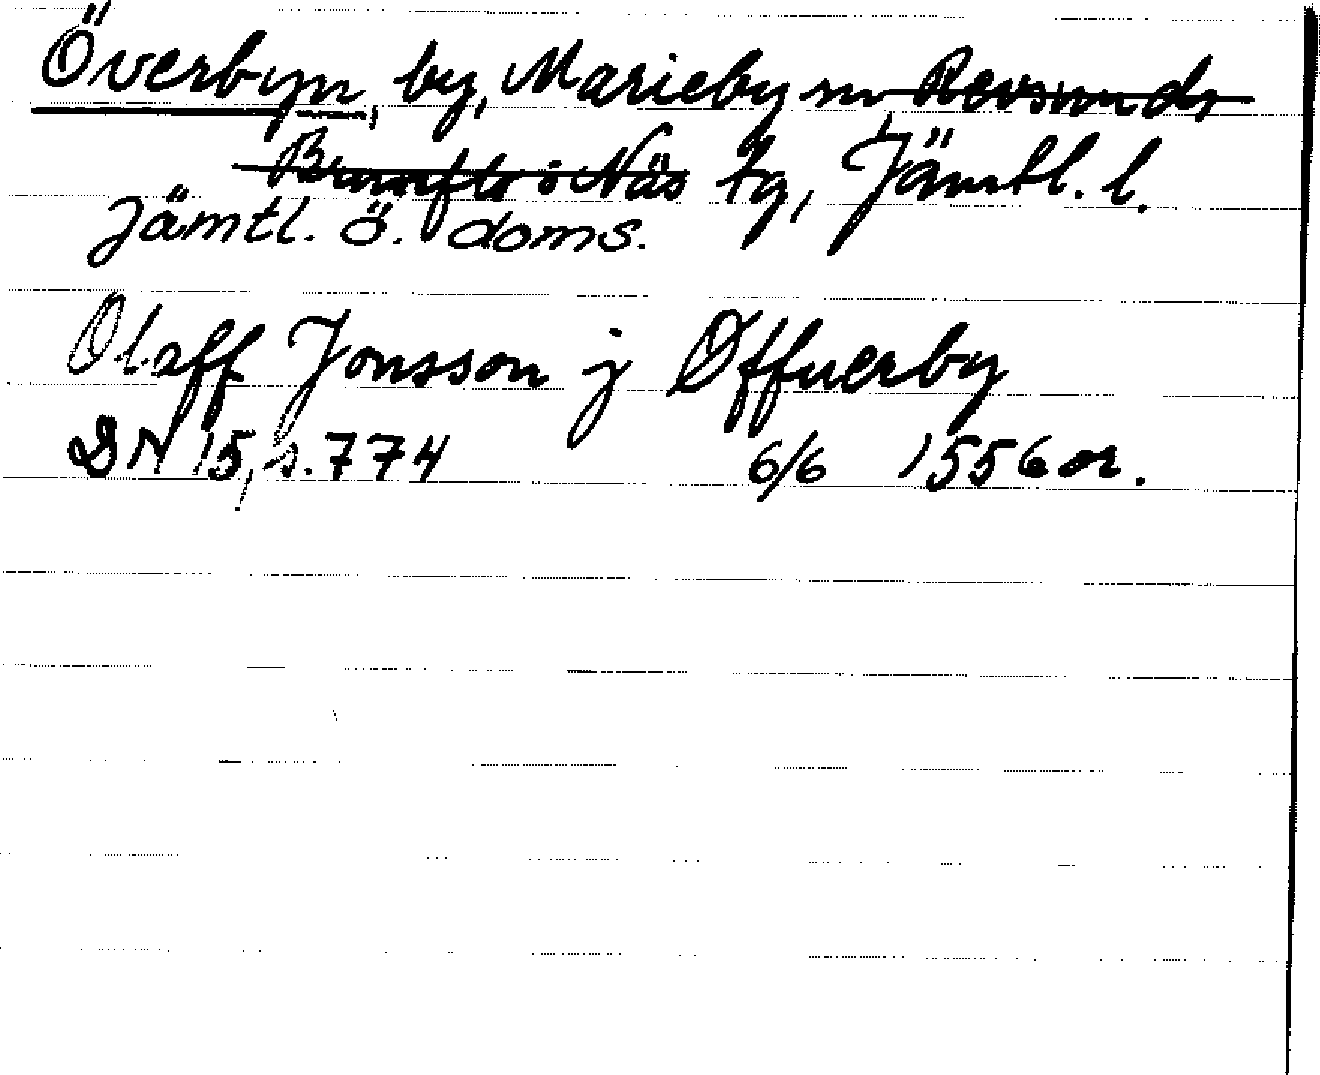 Överbyn, by, Marieby sn Revsunds
Brunflo o Näs tg, Jämtl. l.
Jämtl. ö. doms.
Olaff Jonsson j Øffuerby
DN 15, s. 774 6/6 1556 or.